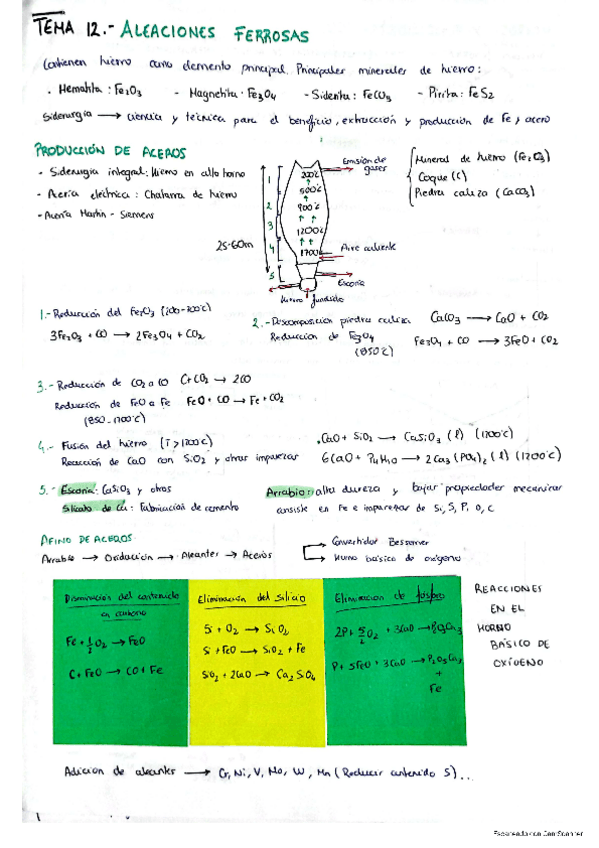 TEMA 12.- ALEACIONES FERROSAS
Contienen hierro como elemento principal. Principales minerales de hierro:
· Hematita: Fe2O3 - Magnetita: Fe3O4 - Siderita: FeCO3 - Pirita: FeS2
Siderurgia → ciencia y técnica para el beneficio, extracción y producción de Fe y acero
PRODUCCIÓN DE ACEROS
- Siderurgia integral: Hierro en alto horno
- Acería eléctrica: Chatarra de hierro
- Acería Martin - Siemens
25-60m
1
2
3
4
5
200ºC
500ºC
900ºC
1200ºC
1700ºC
Emisión de gases
Aire caliente
Escoria
Hierro fundido
Mineral de hierro (Fe2O3)
Coque (C)
Piedra caliza (CaCO3)
1.- Reducción del Fe2O3 (200-700ºC)
3Fe2O3 + CO → 2Fe3O4 + CO2
2.- Descomposición piedra caliza CaCO3 → CaO + CO2
Reducción de Fe3O4 Fe3O4 + CO → 3FeO + CO2
(850ºC)
3.- Reducción de CO2 a CO C + CO2 → 2CO
Reducción de FeO a Fe FeO + CO → Fe + CO2
(850-1200ºC)
4.- Fusión del hierro (T > 1200ºC) · CaO + SiO2 → CaSiO3 (l) (1200ºC)
Reacción de CaO con SiO2 y otras impurezas 6CaO + P4H10 → 2Ca3(PO4)2 (l) (1200ºC)
5.- Escoria: CaSiO3 y otros
Silicato de Ca: Fabricación de cemento
Arrabio: alta dureza y bajas propiedades mecánicas
consiste en Fe e impurezas de Si, S, P, O, C
AFINO DE ACEROS
Arrabio → Oxidación → Aleantes → Aceros
Convertidor Bessemer
Horno básico de oxígeno
Disminución del contenido en carbono
Fe + 1/2 O2 → FeO
C + FeO → CO + Fe
Eliminación del Silicio
Si + O2 → SiO2
Si + FeO → SiO2 + Fe
SiO2 + 2CaO → Ca2SiO4
Eliminación de fósforo
2P + 5/2 O2 + 3CaO → P2O8Ca3
P + 5FeO + 3CaO → P2O8Ca3 + Fe
REACCIONES
EN EL
HORNO
BÁSICO DE
OXÍGENO
Adición de aleantes → Cr, Ni, V, Mo, W, Mn (Reducir contenido S)...
Escaneado con CamScanner